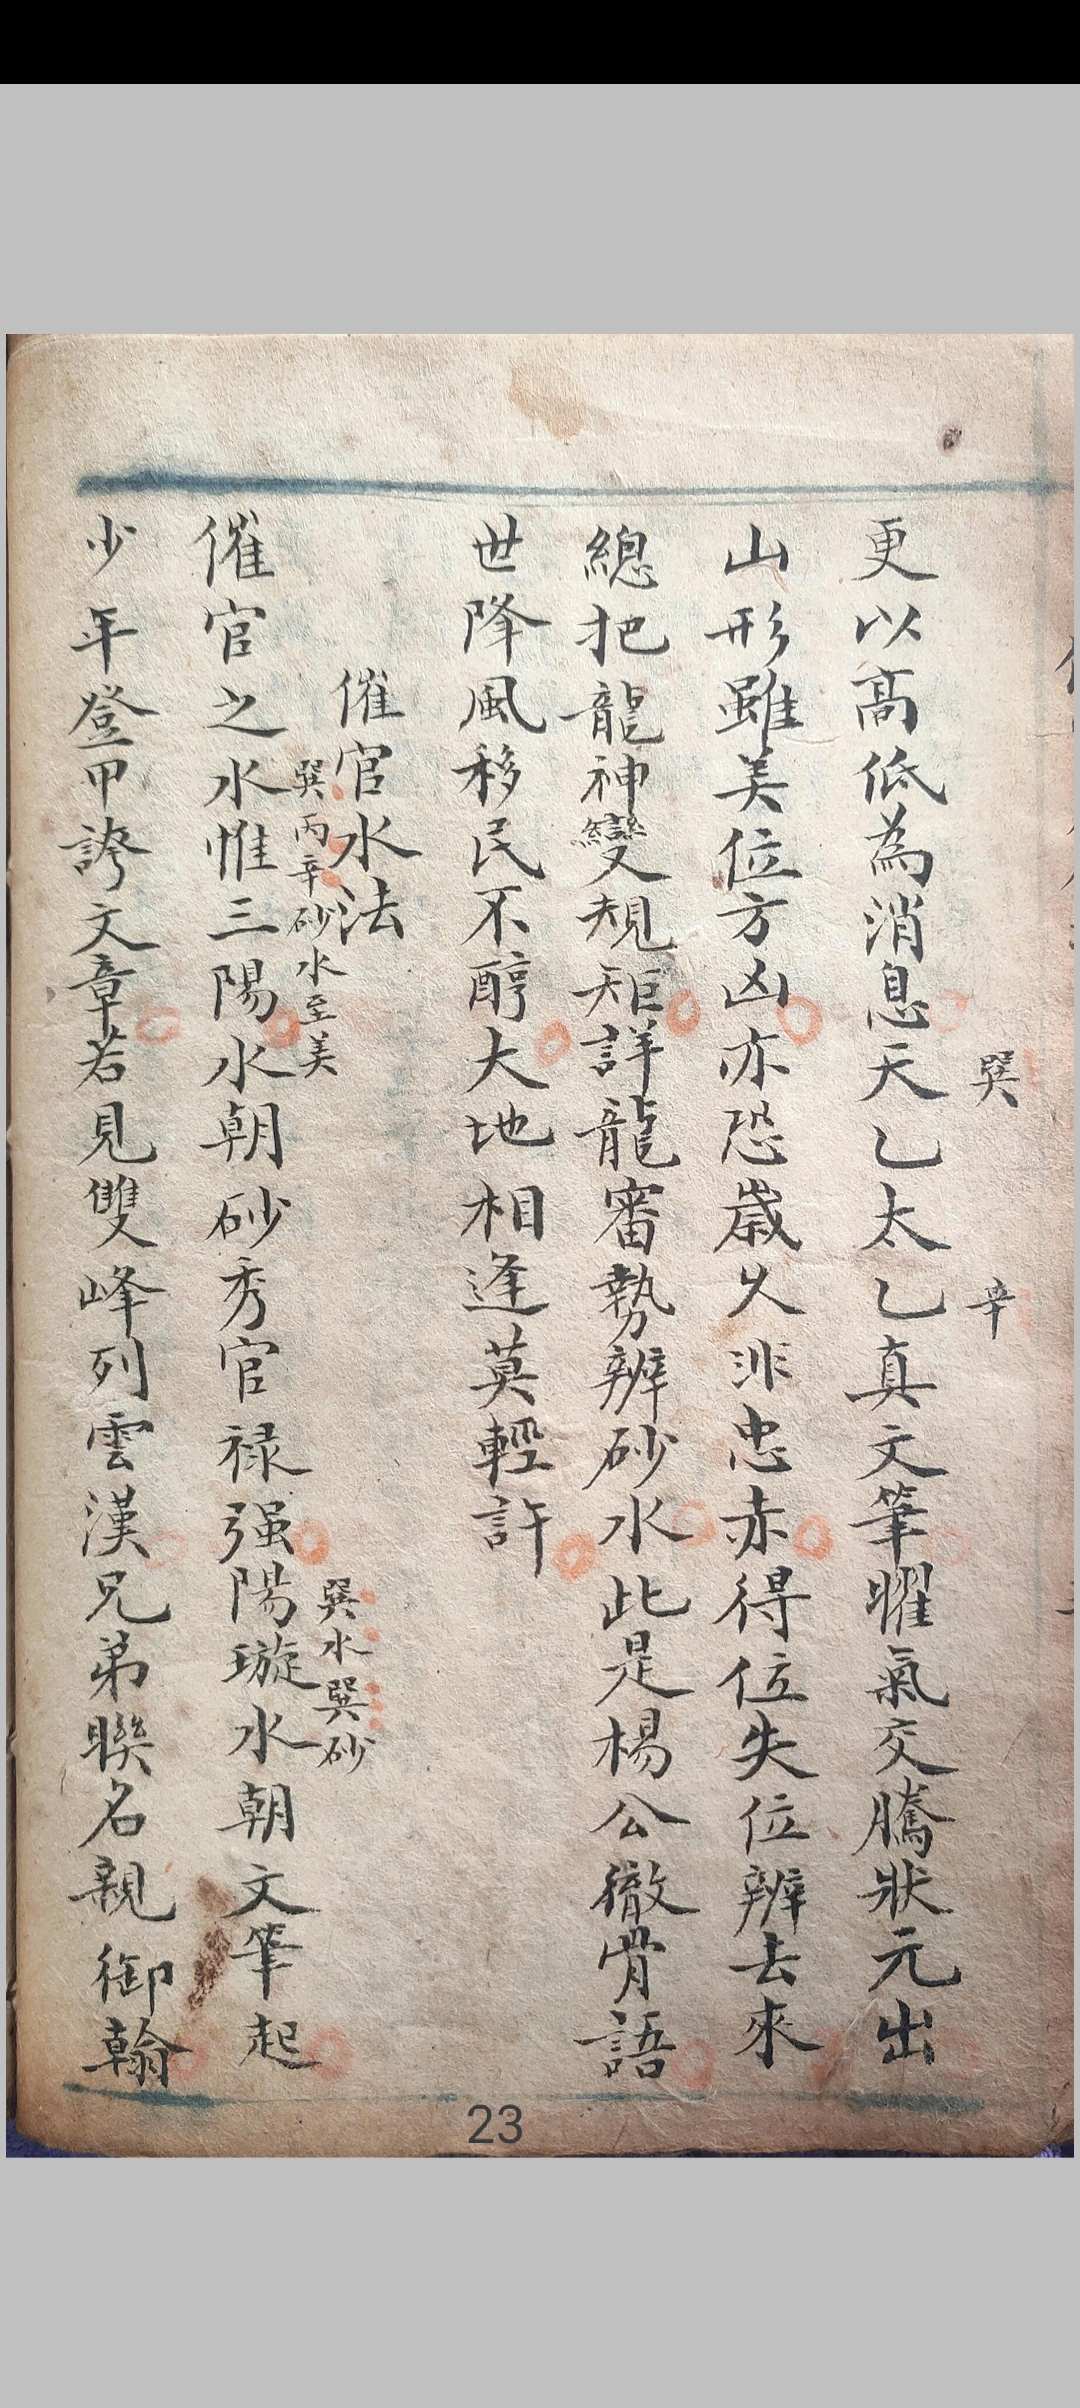 巽
辛
更以高低為消息天乙太乙真文筆曜氣交騰狀元出
山形雖美位方凶亦恐歲久非忠赤得位失位辨去來
總把龍神變規矩詳龍審勢辨砂水此是楊公徹骨語
世降風移民不醇大地相逢莫輕許
催官水法
巽丙辛砂水至美
巽水巽砂
催官之水惟三陽水朝砂秀官祿强陽璇水朝文筆起
少年登甲誇文章若見雙峰列雲漢兄弟聯名親御翰
23